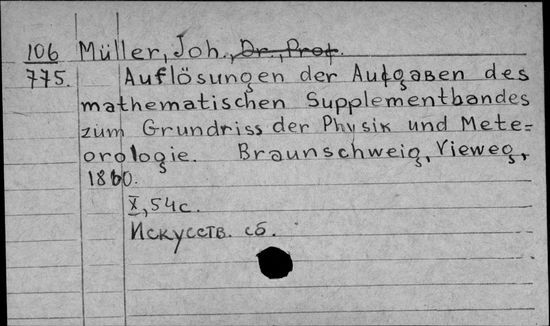 106 Müller, Joh., Dr., Prof.
775. Auflösungen der Aufgaben des
mathematischen Supplementbandes
zum Grundriss der Physik und Mete=
orologie. Braunschweig, Vieweg,
1860.
X, 54 с.
Искусств. сб.